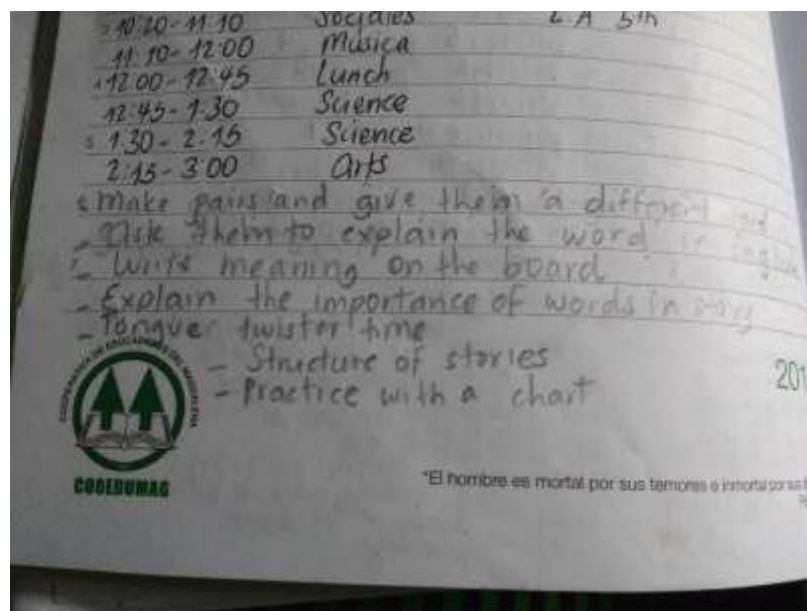 10:20-11:10 Sociales L A 5th
11:10-12:00 Música
12:00-12:45 Lunch
12:45-1:30 Science
1:30-2:15 Science
2:15-3:00 Arts
Make pairs and give them a different
- Ask them to explain the word in english
- Write meaning on the board
- Explain the importance of words in story
- Tonguer twister time
- Structure of stories
- Practice with a chart
COOPERATIVA DE EDUCADORES DEL MAGDALENA
COOEDUMAG
201
"El hombre es mortal por sus temores e inmortal por sus